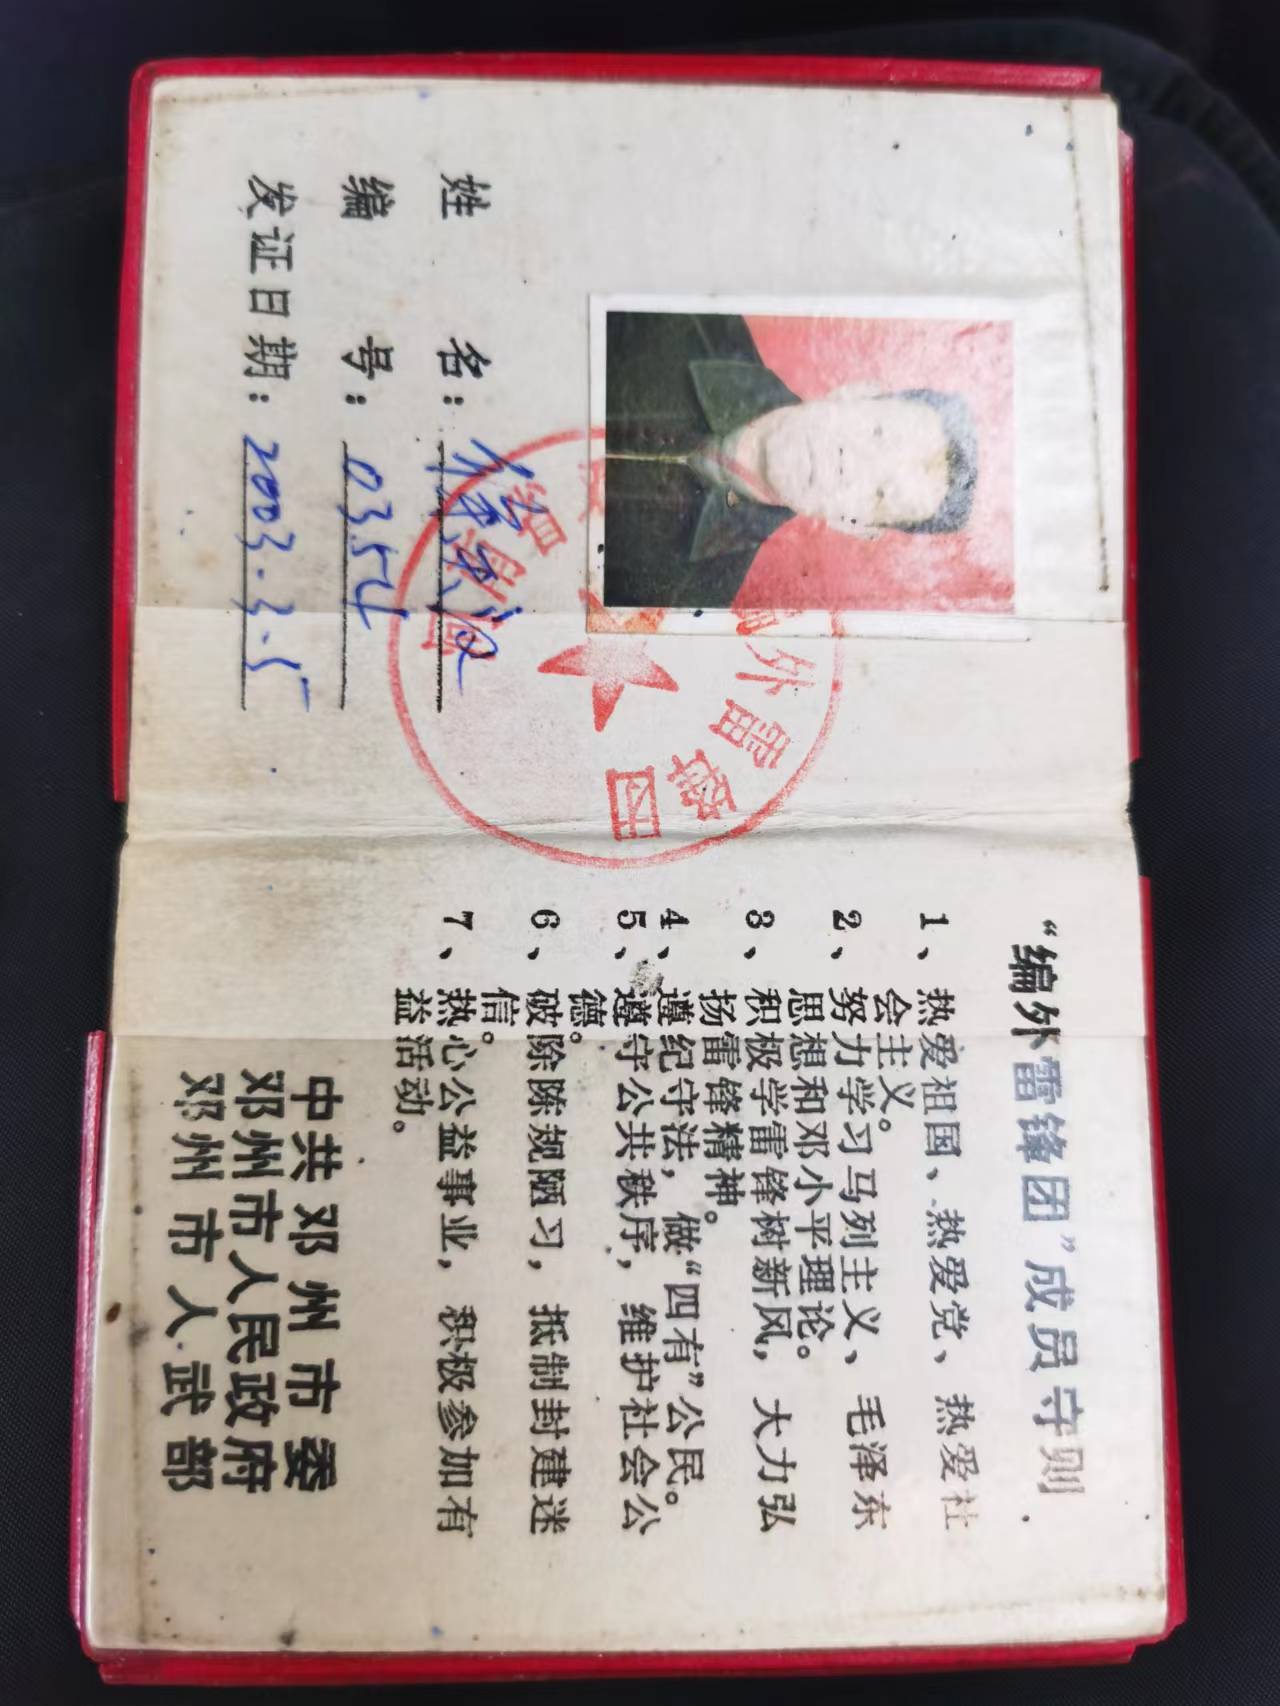 姓名：徐
编号：0354
发证日期：2003.3.5
编外雷锋团
“编外雷锋团”成员守则
1、热爱祖国、热爱党、热爱社
会主义。
2、努力学习马列主义、毛泽东
思想和邓小平理论。
3、积极学雷锋树新风，大力弘
扬雷锋精神。
4、遵纪守法，做“四有”公民。
5、遵守公共秩序，维护社会公
德。
6、破除陈规陋习，抵制封建迷
信。
7、热心公益事业，积极参加有
益活动。
中共邓州市委
邓州市人民政府
邓州市人武部